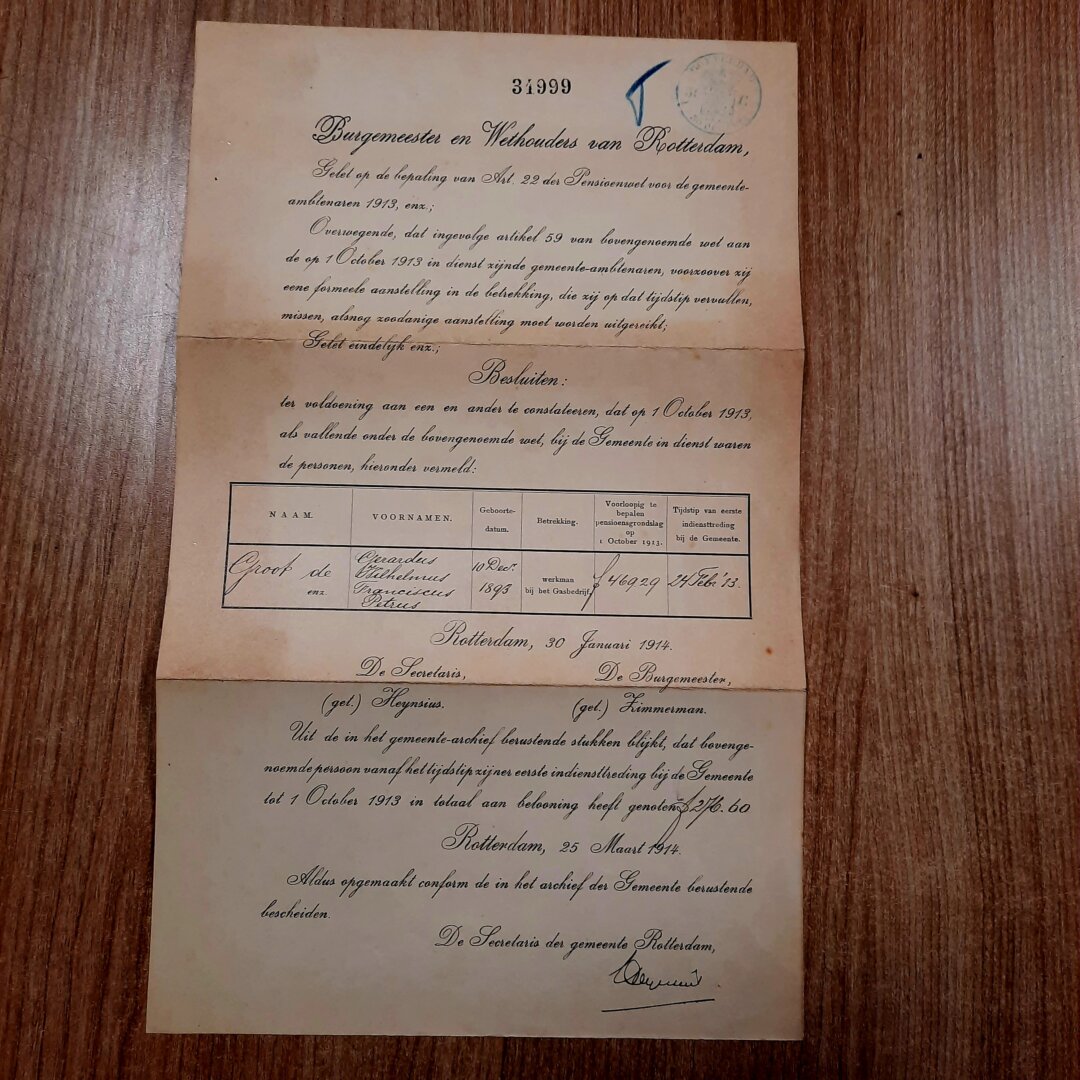 34999
Burgemeester en Wethouders van Rotterdam,
Gelet op de bepaling van Art. 22 der Pensioenwet voor de gemeente-
ambtenaren 1913, enz.;
Overwegende, dat ingevolge artikel 59 van bovengenoemde wet aan
de op 1 October 1913 in dienst zijnde gemeente-ambtenaren, voorzoover zij
eene formeele aanstelling in de betrekking, die zij op dat tijdstip vervullen,
missen, alsnog zoodanige aanstelling moet worden uitgereikt;
Gelet eindelijk enz.;
Besluiten:
ter voldoening aan een en ander te constateeren, dat op 1 October 1913,
als vallende onder de bovengenoemde wet, bij de Gemeente in dienst waren
de personen, hieronder vermeld:
NAAM.
VOORNAMEN.
Geboorte-
datum.
Betrekking.
Voorloopig te
bepalen
pensioensgrondslag
op
1 October 1913.
Tijdstip van eerste
indiensttreding
bij de Gemeente.
Groot de
enz.
Gerardus
Wilhelmus
Franciscus
Petrus
10 Decr.
1893
werkman
bij het Gasbedrijf
f 469 29
24 Febr '13.
Rotterdam, 30 Januari 1914.
De Secretaris, De Burgemeester,
(get.) Heynsius. (get.) Zimmerman.
Uit de in het gemeente-archief berustende stukken blijkt, dat bovenge-
noemde persoon vanaf het tijdstip zijner eerste indiensttreding bij de Gemeente
tot 1 October 1913 in totaal aan belooning heeft genoten f 276.60
Rotterdam, 25 Maart 1914.
Aldus opgemaakt conform de in het archief der Gemeente berustende
bescheiden.
De Secretaris der gemeente Rotterdam,